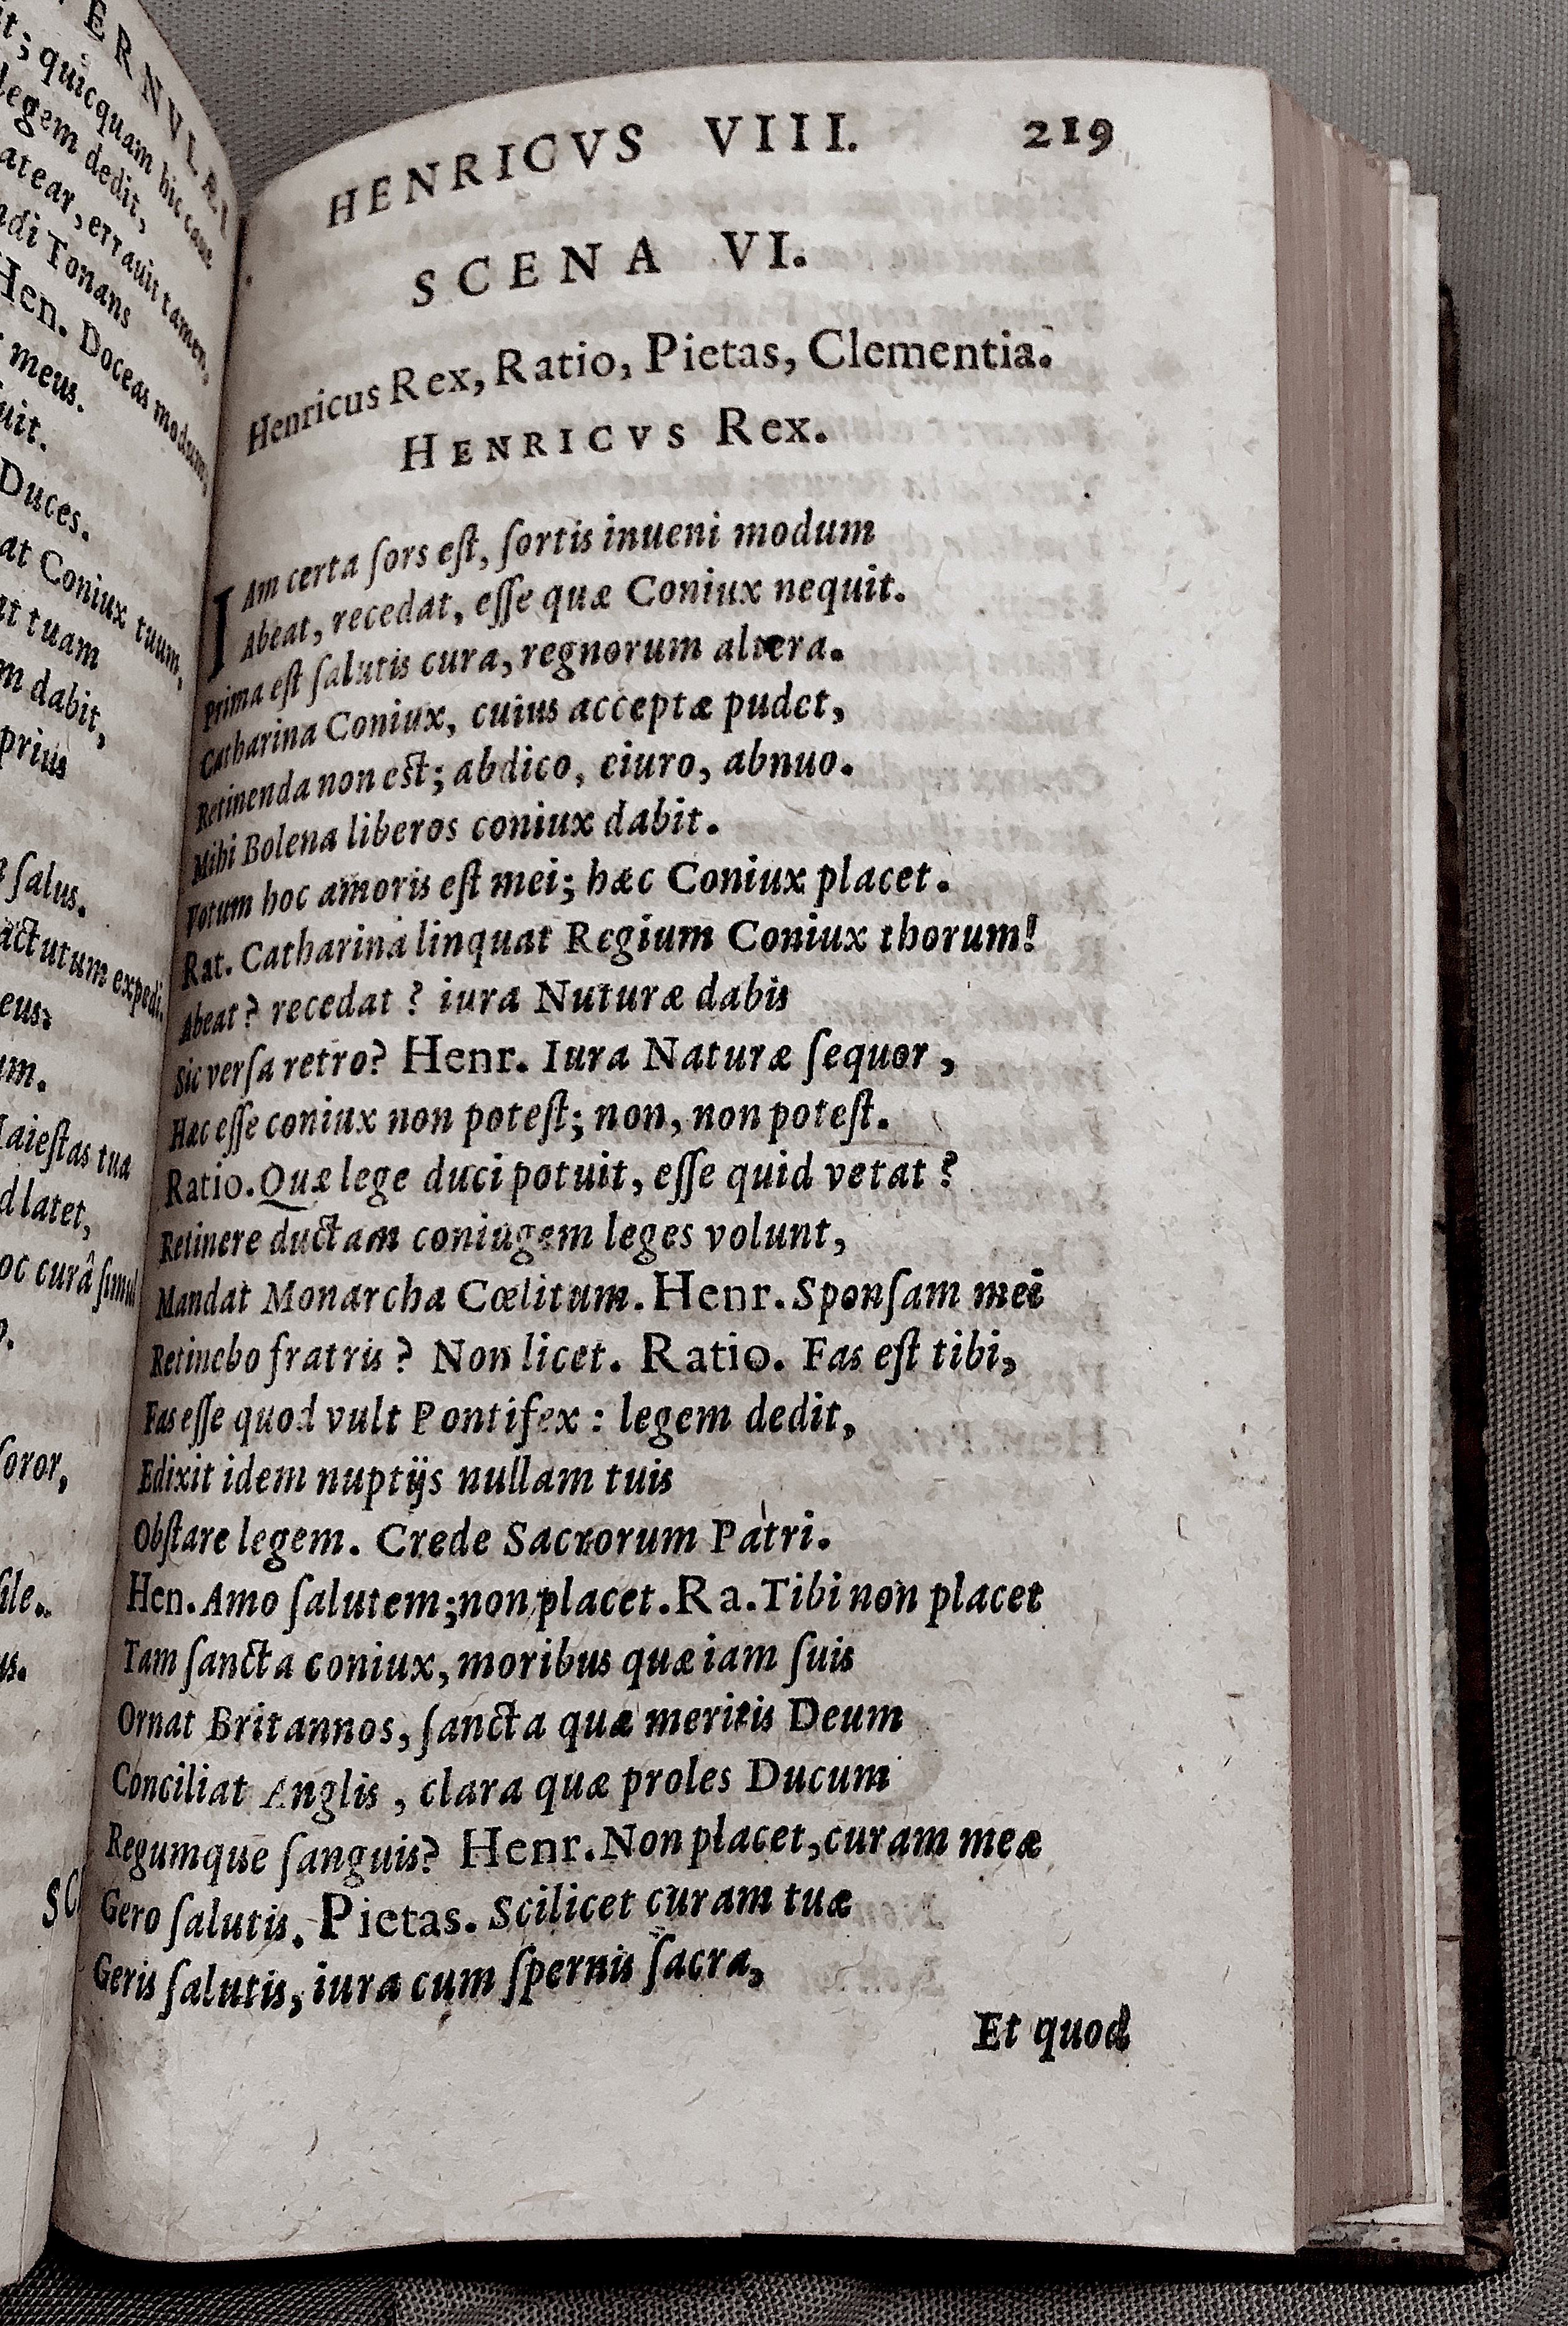 ERNVLÆI
t; quicquam hic caue
legem dedit,
atear, errauit tamen,
ndi Tonans
Hen. Doceas modum,
meus.
uit.
Duces.
at Coniux tuum,
at tuam
m dabit,
prius
ſalus.
actutum expedi.
eus:
um.
Iaieſtas tua
d latet,
oc curâ ſimul
ſoror,
ſile.
us.
SC
HENRICVS VIII. 219
SCENA VI.
Henricus Rex, Ratio, Pietas, Clementia.
HENRICVS Rex.
IAm certa ſors eſt, ſortis inueni modum
Abeat, recedat, eſſe quæ Coniux nequit.
Prima eſt ſalutis cura, regnorum altera.
Catharina Coniux, cuius acceptæ pudet,
Retinenda non est; abdico, eiuro, abnuo.
Mihi Bolena liberos coniux dabit.
Votum hoc amoris eſt mei; hæc Coniux placet.
Rat. Catharina linquat Regium Coniux thorum!
Abeat? recedat? iura Nuturæ dabis
Sic verſa retro? Henr. Iura Naturæ ſequor,
Hæc eſſe coniux non poteſt; non, non poteſt.
Ratio. Quæ lege duci potuit, eſſe quid vetat?
Retinere ductam coniugem leges volunt,
Mandat Monarcha Cœlitum. Henr. Sponſam mei
Retinebo fratris? Non licet. Ratio. Fas eſt tibi,
Fas eſſe quod vult Pontifex: legem dedit,
Edixit idem nuptijs nullam tuis
Obſtare legem. Crede Sacrorum Patri.
Hen. Amo ſalutem; non placet. Ra. Tibi non placet
Tam ſancta coniux, moribus quæ iam ſuis
Ornat Britannos, ſancta quæ meritis Deum
Conciliat Anglis, clara quæ proles Ducum
Regumque ſanguis? Henr. Non placet, curam meæ
Gero ſalutis. Pietas. Scilicet curam tuæ
Geris ſalutis, iura cum ſpernis ſacra,
Et quod